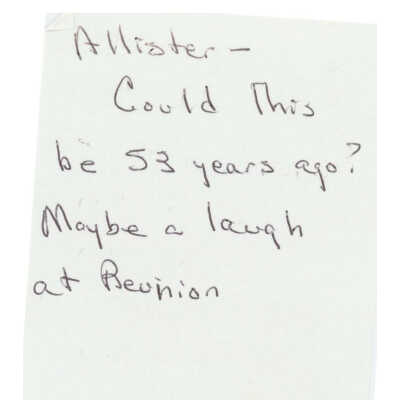 Allister —
Could This
be 53 years ago?
Maybe a laugh
at Reunion